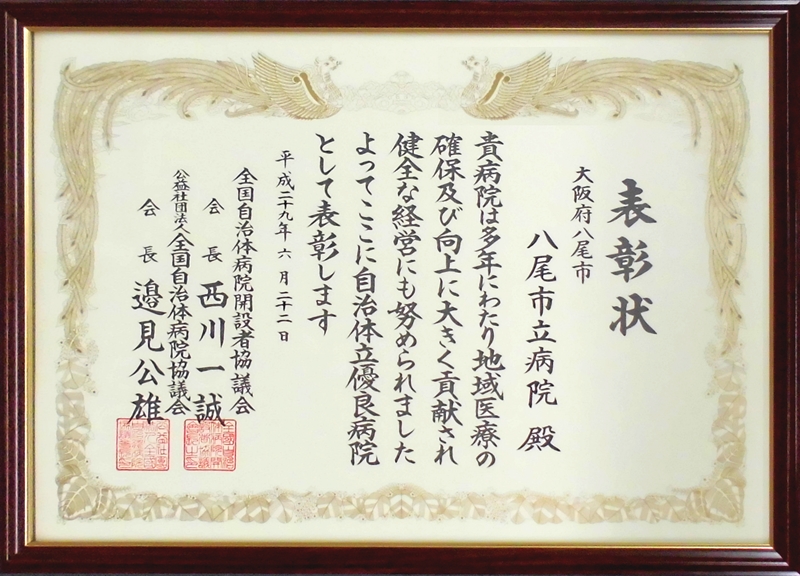 表彰状
大阪府八尾市
八尾市立病院 殿
貴病院は多年にわたり地域医療の
確保及び向上に大きく貢献され
健全な経営にも努められました
よってここに自治体立優良病院
として表彰します
平成二十九年六月二十二日
全国自治体病院開設者協議会
会長 西川一誠
公益社団法人全国自治体病院協議会
会長 邉見公雄